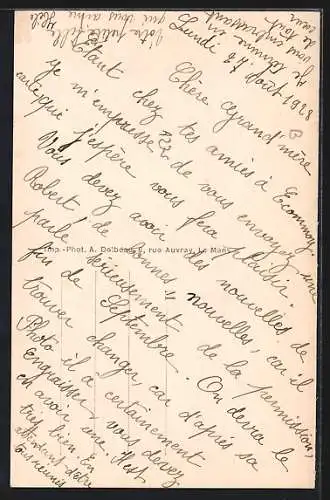 Lundi 26 Août 1918
Chère Grand'mère
Étant chez tes amies à Ecommoy
je m'empresse de vous envoyer une
carte qui j'espère vous fera plaisir.
Vous devez avoir des nouvelles de
Robert, de bonnes nouvelles, car il
parle sérieusement de la permission,
fin de Septembre. On devra le
trouver changer, car d'après sa
Photo il a certainement
Engraisser, vous devez
en avoir une. C'est
très bien. En
attendant d'être
tous réunies
de vous
de tout
cœur
Votre petite fille
qui vous aime
222
B
Imp.-Phot. A. Dolbeau, rue Auvray, Le Mans